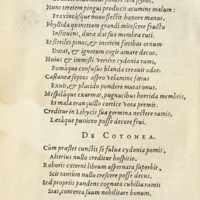 Nunc teretem pingui producit acumine malum:
Fraxineasque nouo flectit honore manus.
Phyllida quinetiam grandi mitescere fructu
Instituens, dura dat sua membra cuti.
Et steriles pinos, & inertem fœtibus ornum
Dotat, & ignotum cogit amare decus.
Huius & immitti vertice cydonia rami,
Pomaque confusus blanda creauit odor.
Castaneæ septos aspro velamine fœtus
Exuit, & placido pondere mutat onus.
Mespilaque exarmat, pugnacibus horrida membris,
Et mala tranquillo cortice vota premit.
Creditur in Libycis sua germina nectere ramis,
Latiaque puniceo posse decore frui.
DE COTONEA.
Cum præstet cunctis se fulua cydonia pomis,
Alterius nullo creditur hospitio.
Roboris externi librum aspernata superbit,
Scit tantum nullo crescere posse decus.
Sed propriis pandens cognata cubilia ramis
Stat, contenta suum nobilitare bonum.